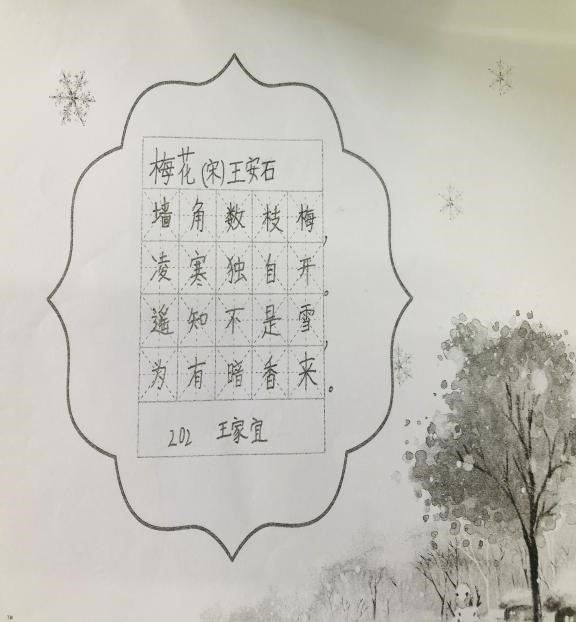 梅花(宋)王安石
墙角数枝梅,
凌寒独自开。
遥知不是雪,
为有暗香来。
202 王家宜